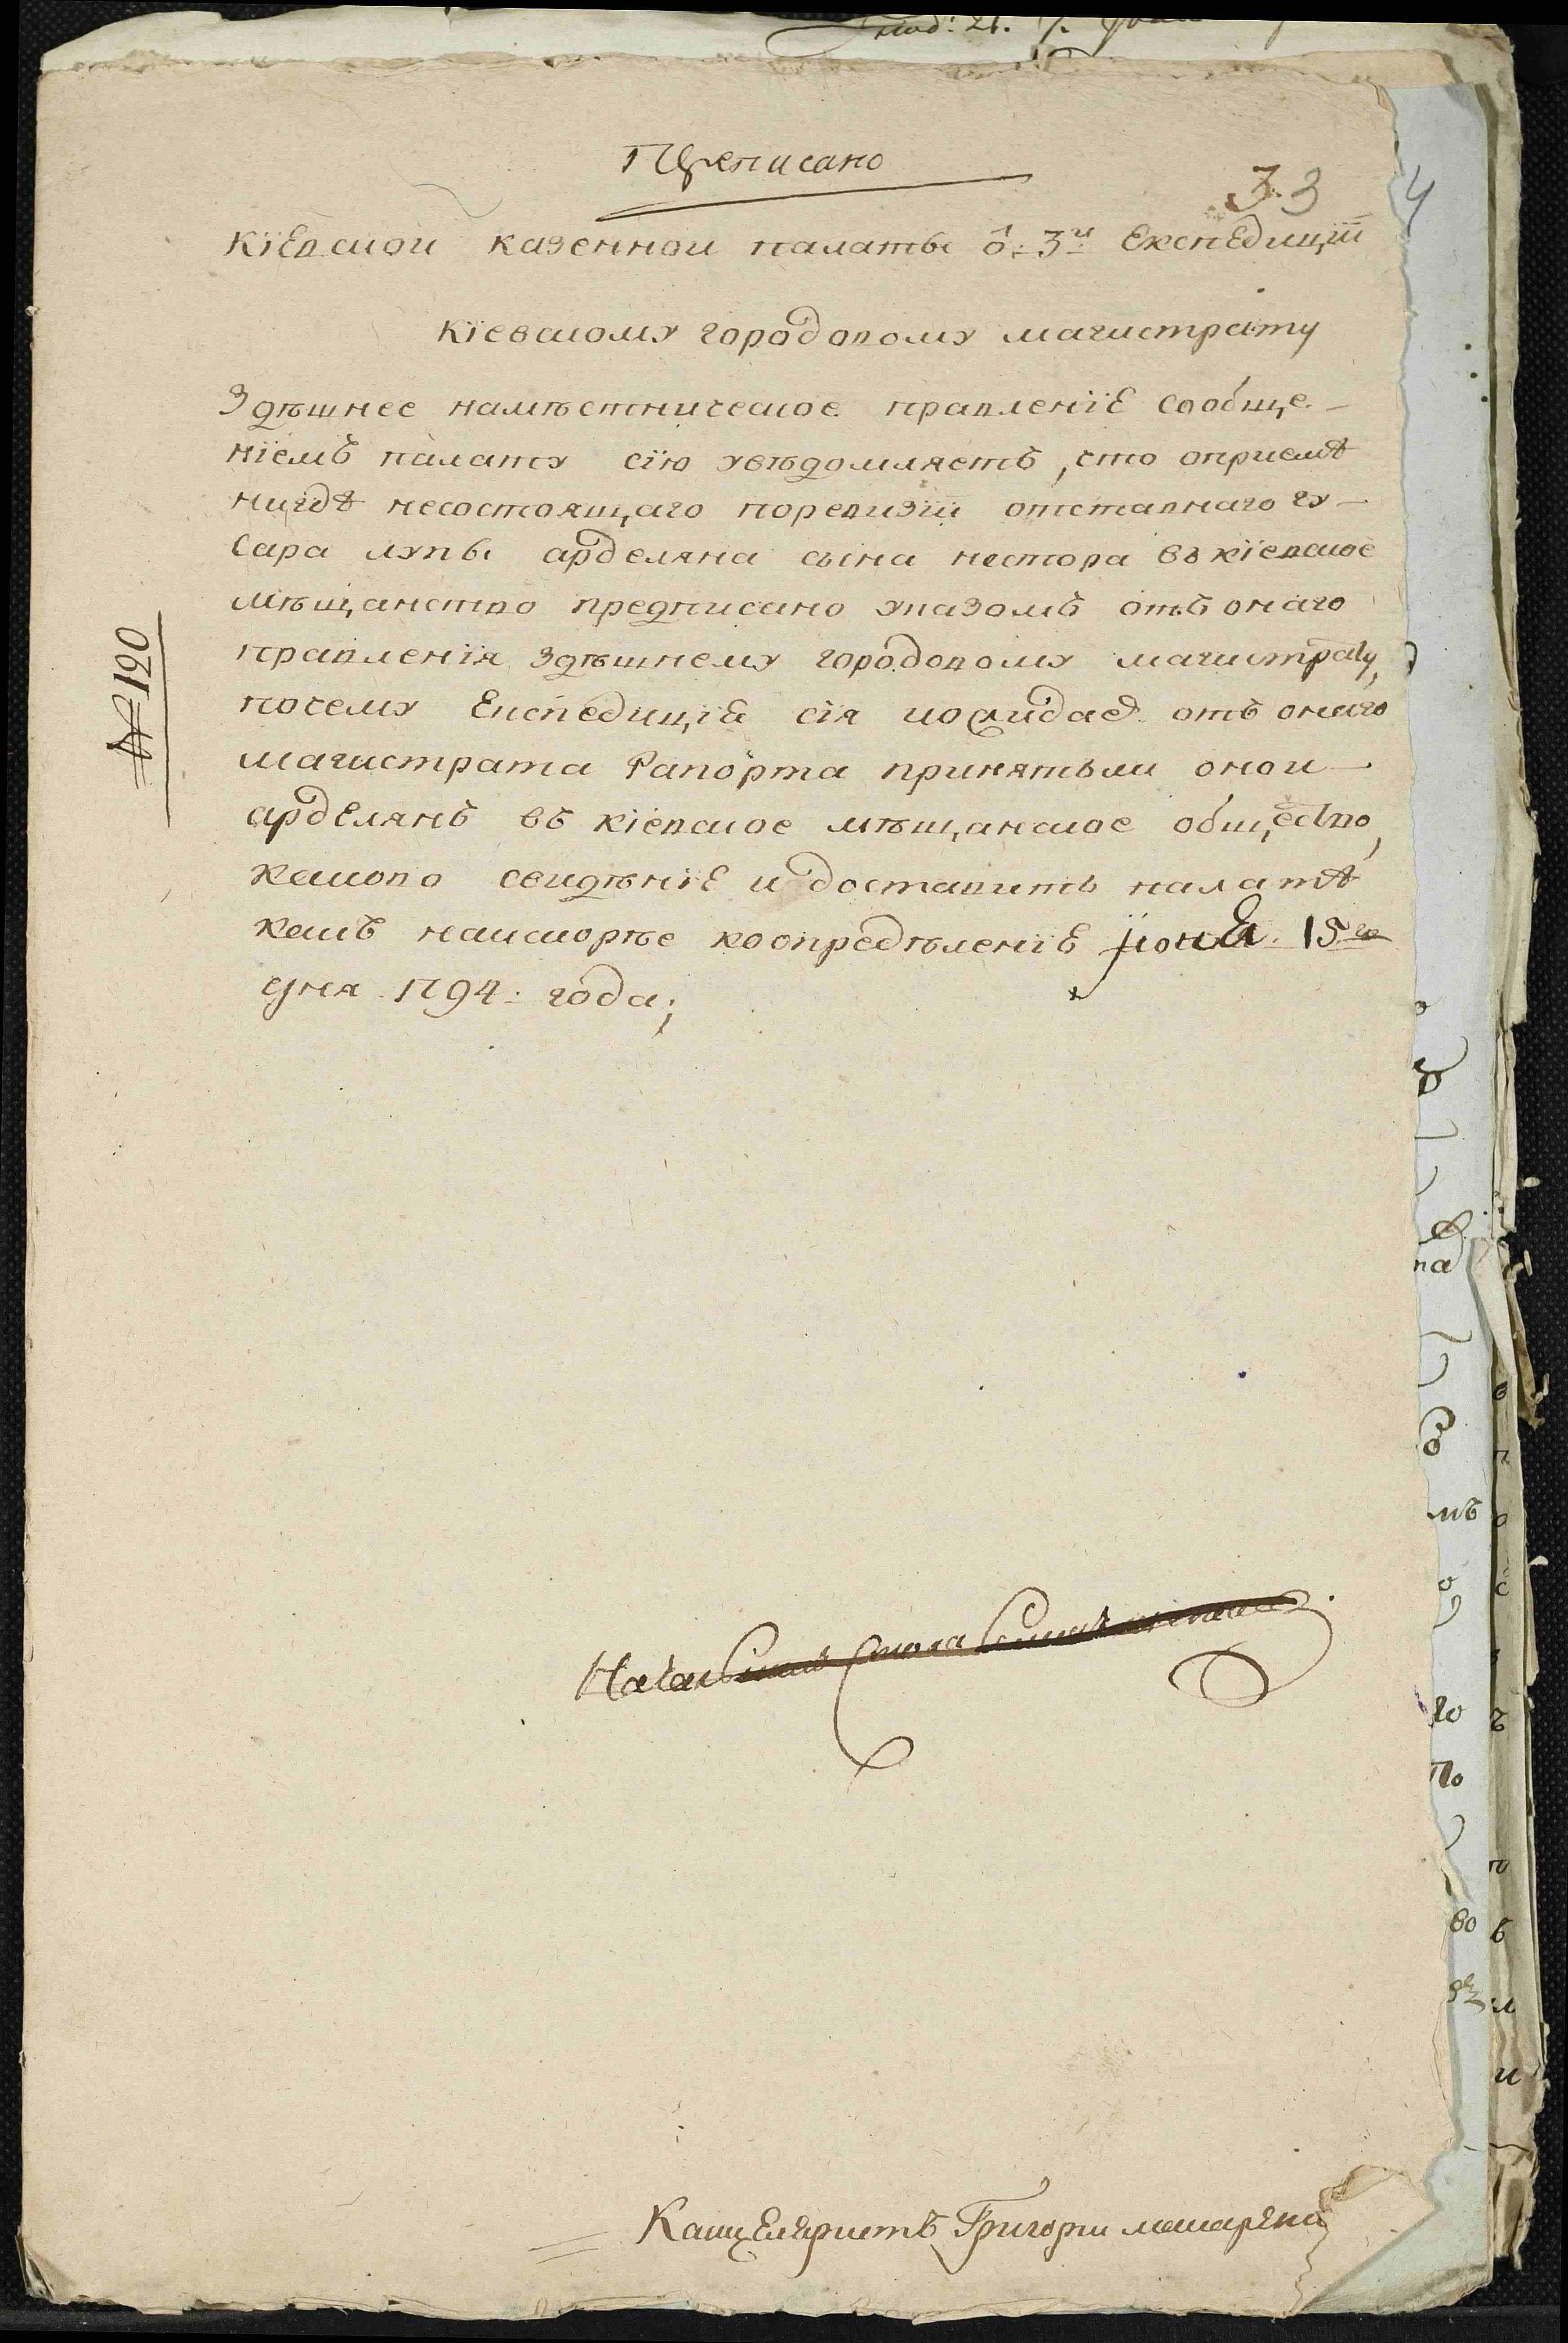 Преписано
33
4
Кїевской казенной палаты ѿ 3й Експедицїи
Кїевскому городовому магистрату
Здѣшнее намѣстническое правленїе сообще-
нїемъ палату сїю увѣдомляетъ, что оприемѣ
нигдѣ несостоящаго поревизїи отставнаго гу-
сара лупы арделяна сына нестора въ кїевское
мѣщанство предписано указомъ отъ онаго
правленїя здѣшнему городовому магистрату,
почему Експедицїя сїя ожидает отъ онаго
магистрата Рапорта принятъли оной
арделянъ въ кїевское мѣщанское общество,
каково свидѣнїе и доставить палатѣ
какъ наискорѣе коопредѣленїе іюня 15го
дня 1794: года;
№ 120
Началникъ стола
Канцеляристъ Григорий